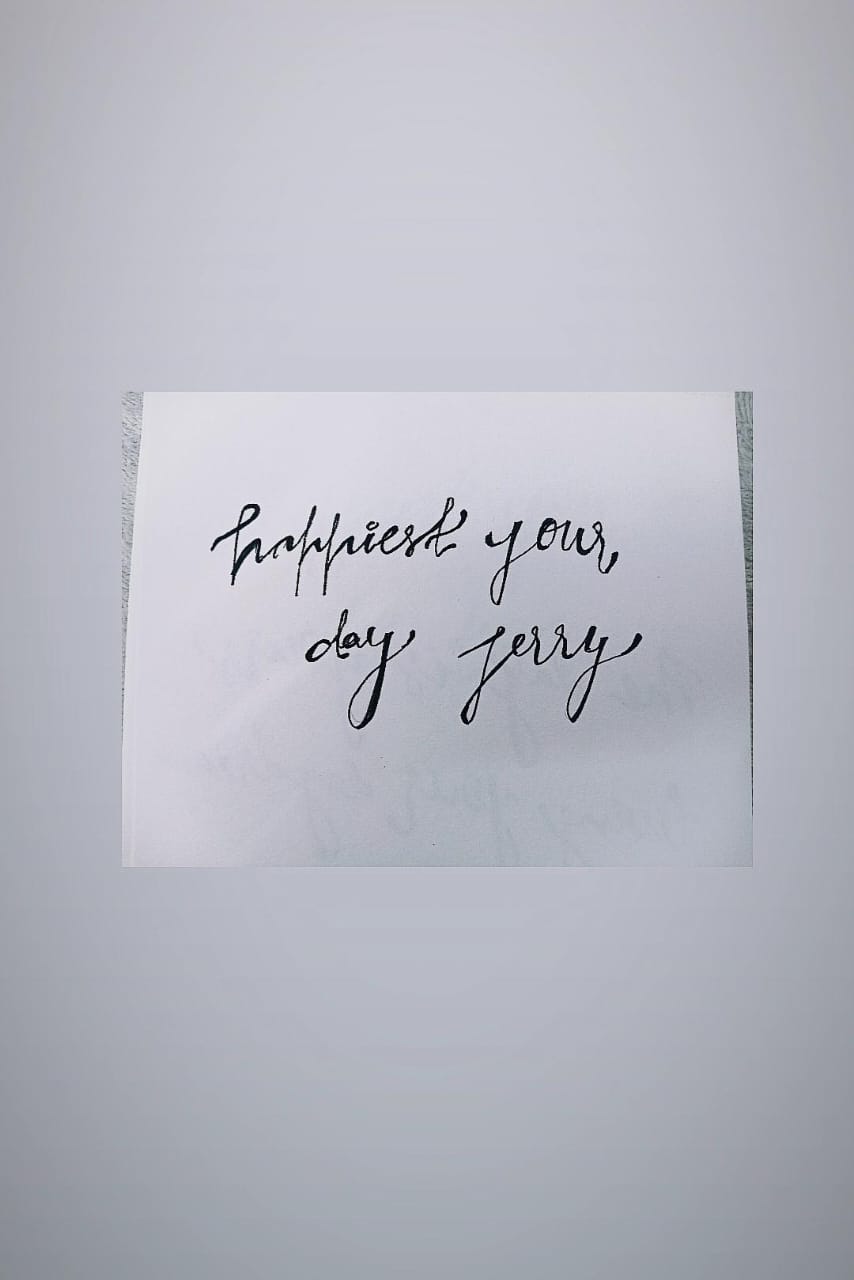 happiest your
day jerry